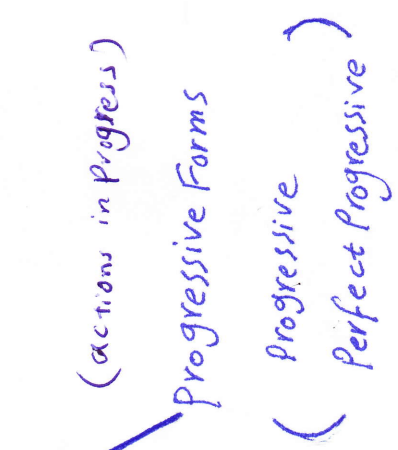 (actions in Progress)
Progressive Forms
( Progressive
Perfect Progressive )